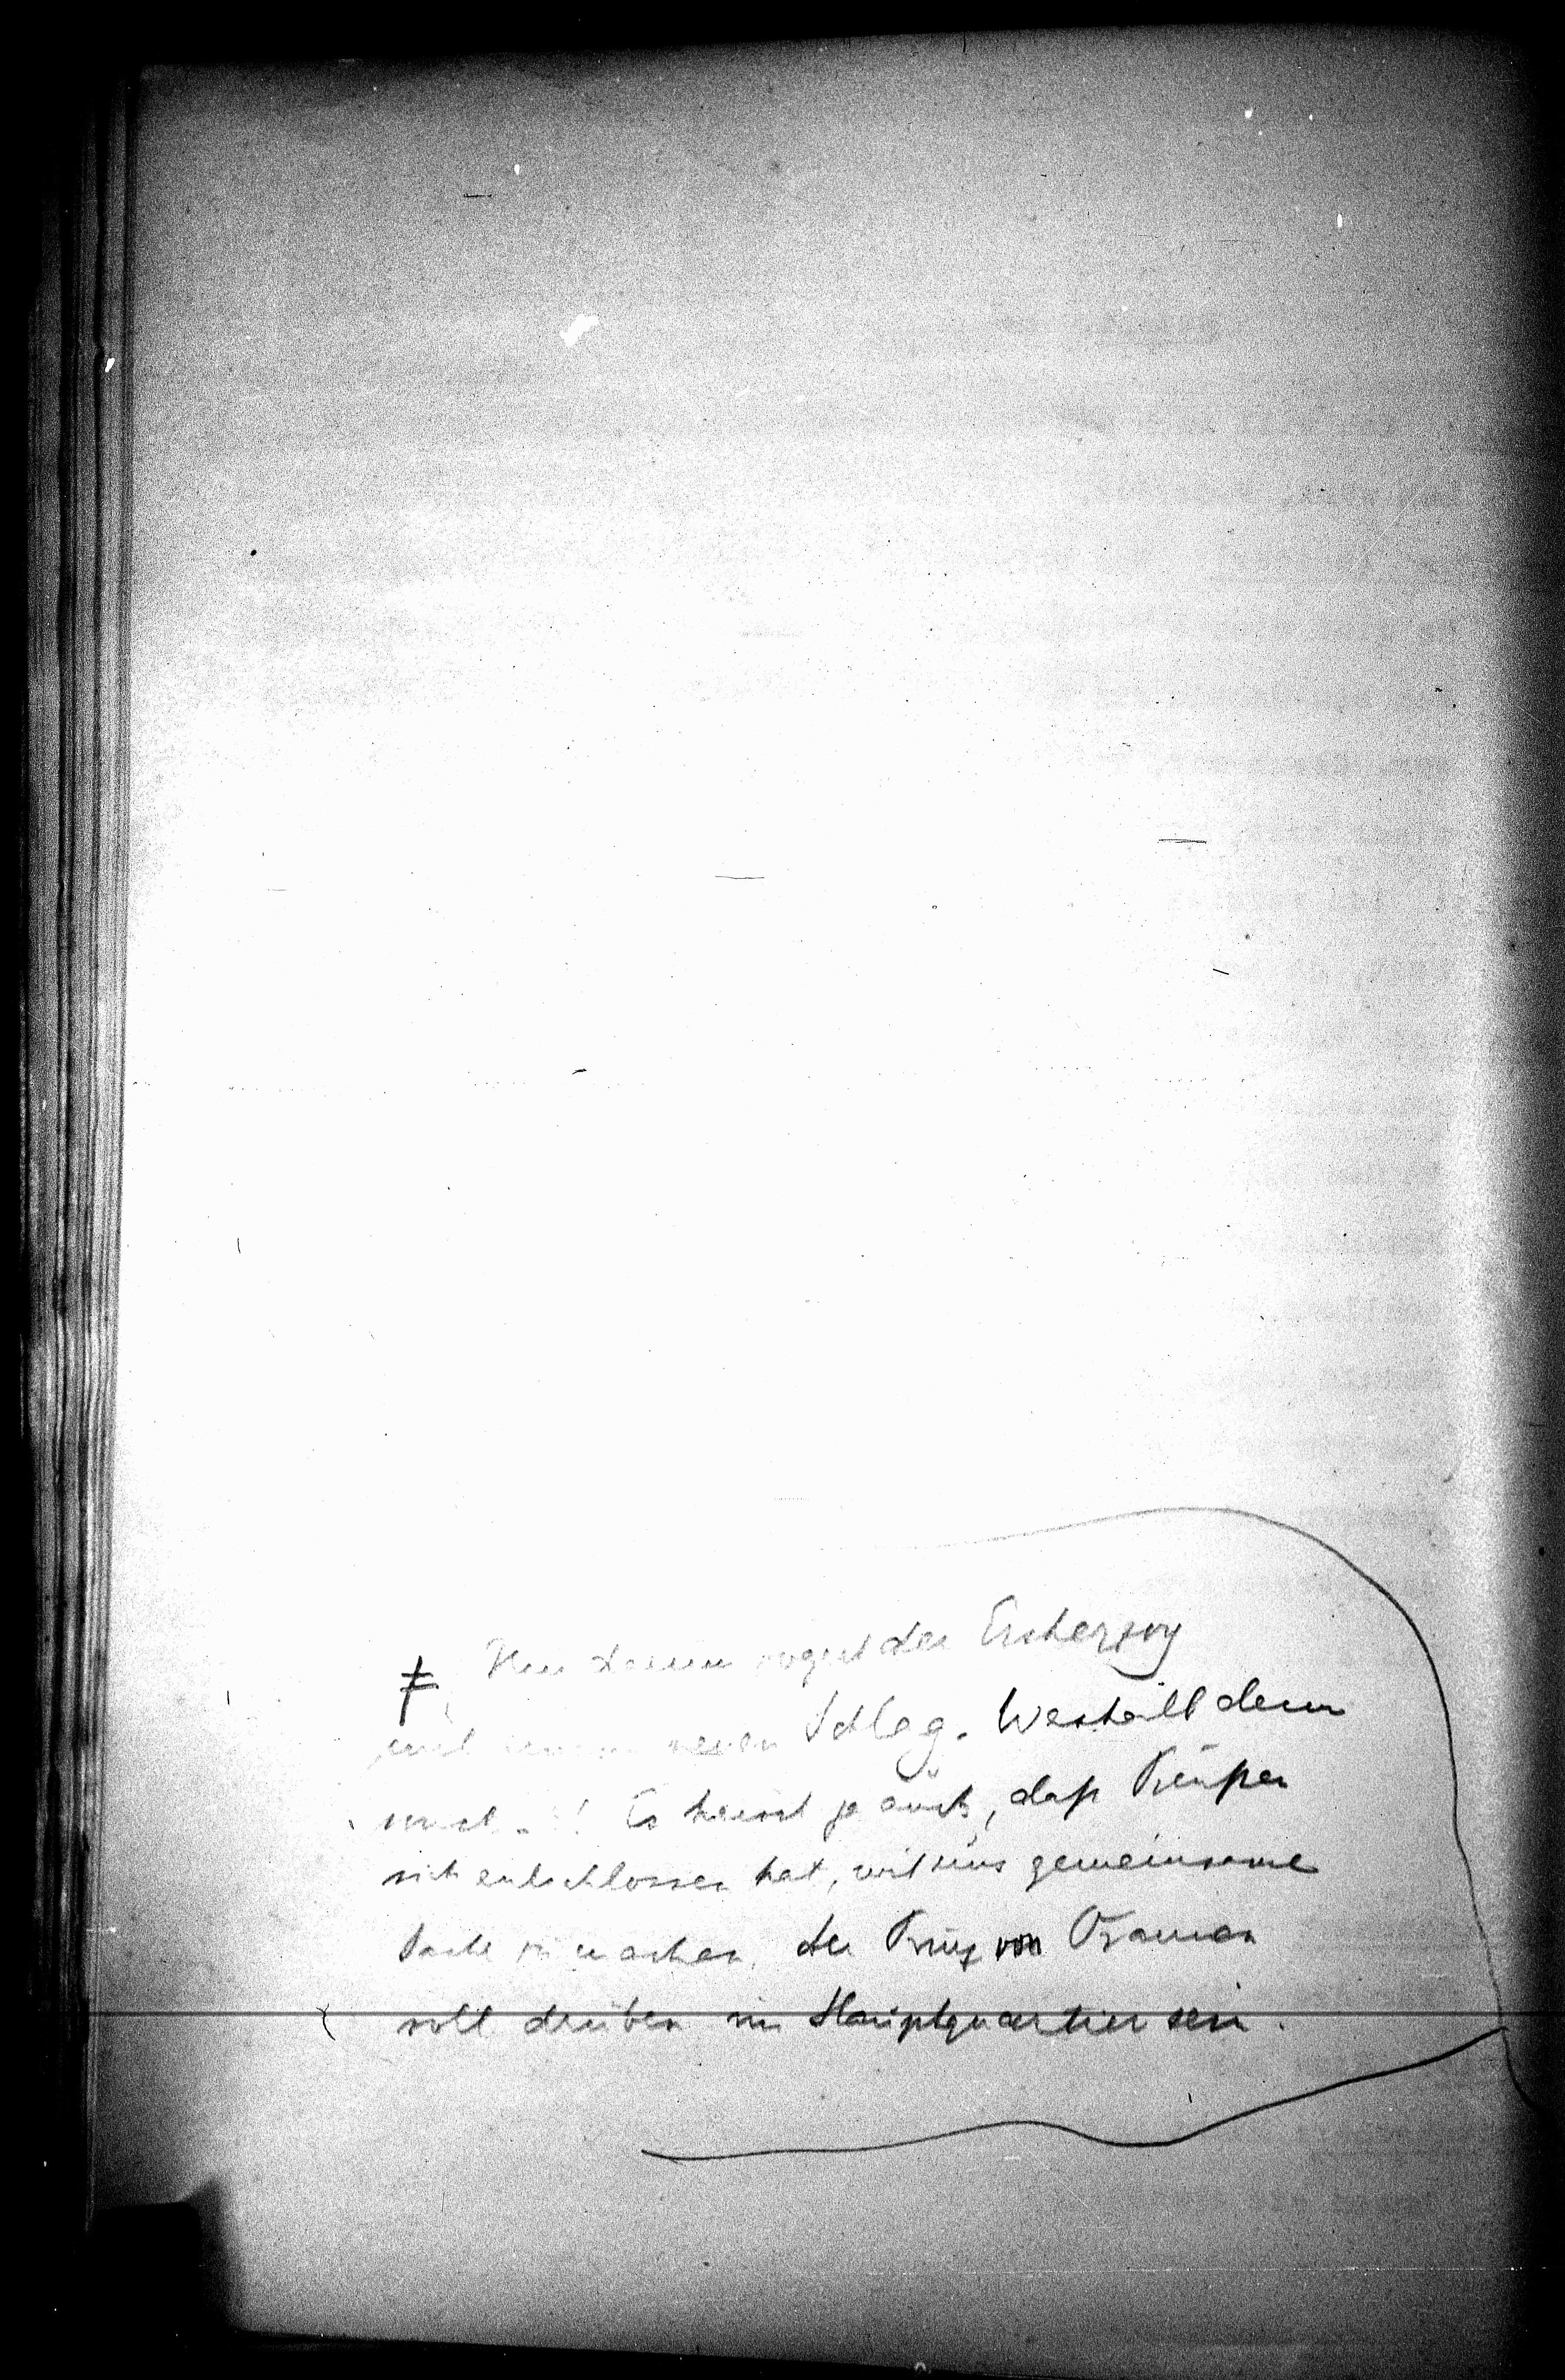 ‡ Nur darum zögert der Erzherzog
mit neuen Schlag. Weshalb denn
sonst -! Es heisst ja auch, daß Preußen
sich entschlossen hat, mit uns gemeinsame
Sache zu machen, der Prinz von Oranien
soll drüben im Hauptquartier sein.